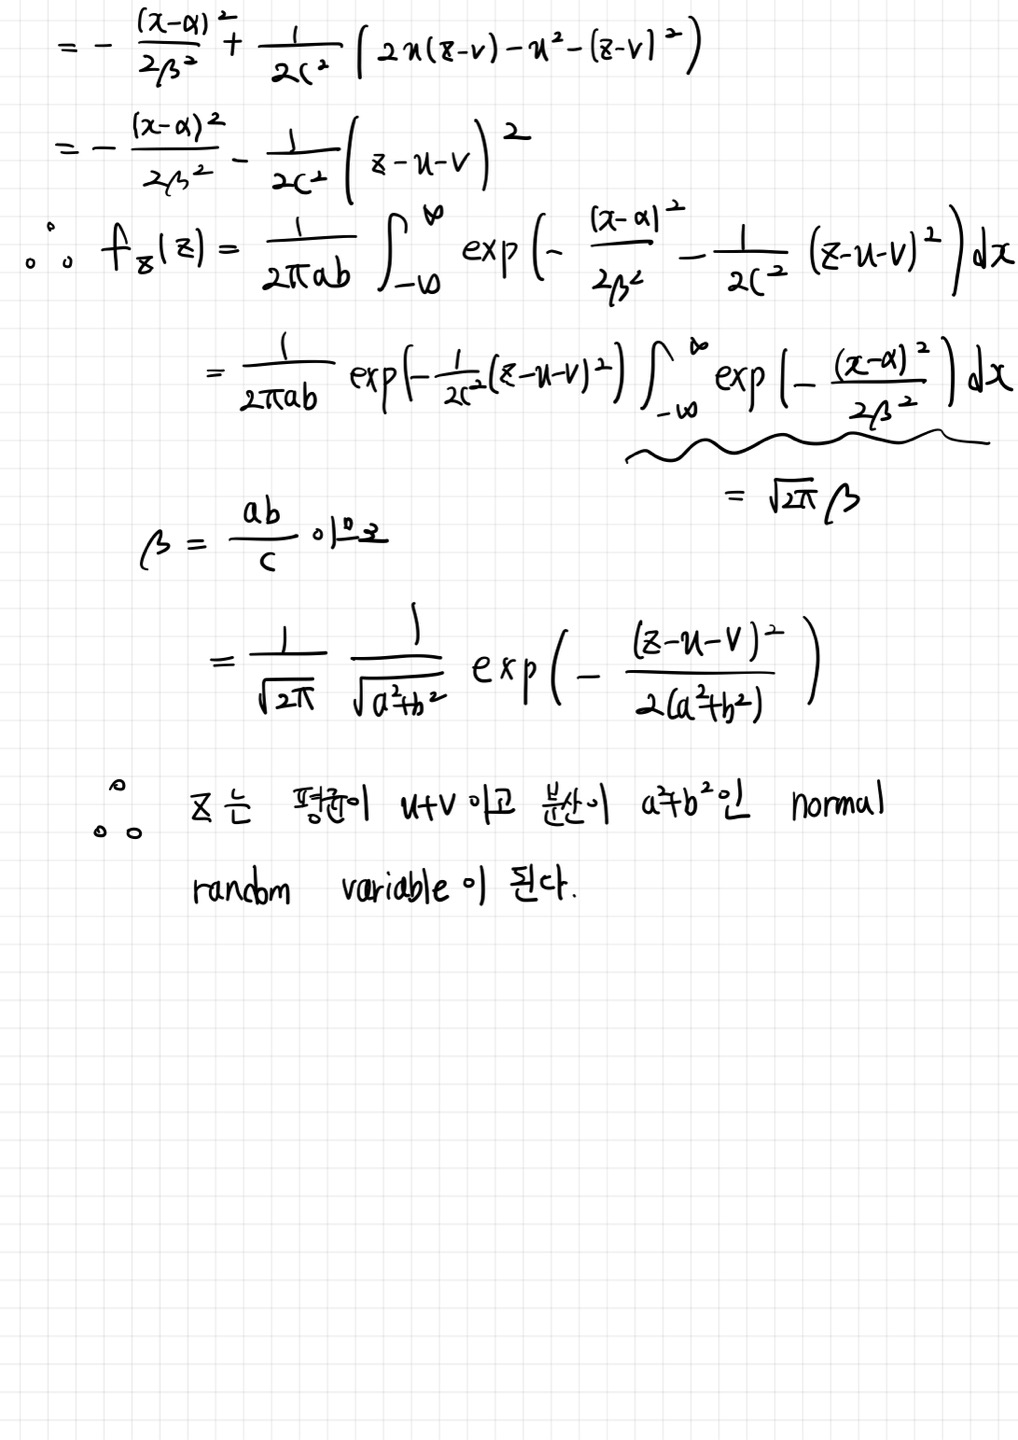 = - (x-α)²/2β² + 1/2c² (2u(z-v) - u² - (z-v)²)
= - (x-α)²/2β² - 1/2c² (z-u-v)²
∴ f_z(z) = 1/2πab ∫_{-∞}^{∞} exp(- (x-α)²/2β² - 1/2c² (z-u-v)²) dx
= 1/2πab exp(- 1/2c² (z-u-v)²) ∫_{-∞}^{∞} exp(- (x-α)²/2β²) dx
= √2π β
β = ab/c 이므로
= 1/√2π 1/√a²+b² exp(- (z-u-v)²/2(a²+b²))
∴ z는 평균이 u+v이고 분산이 a²+b²인 normal
random variable이 된다.